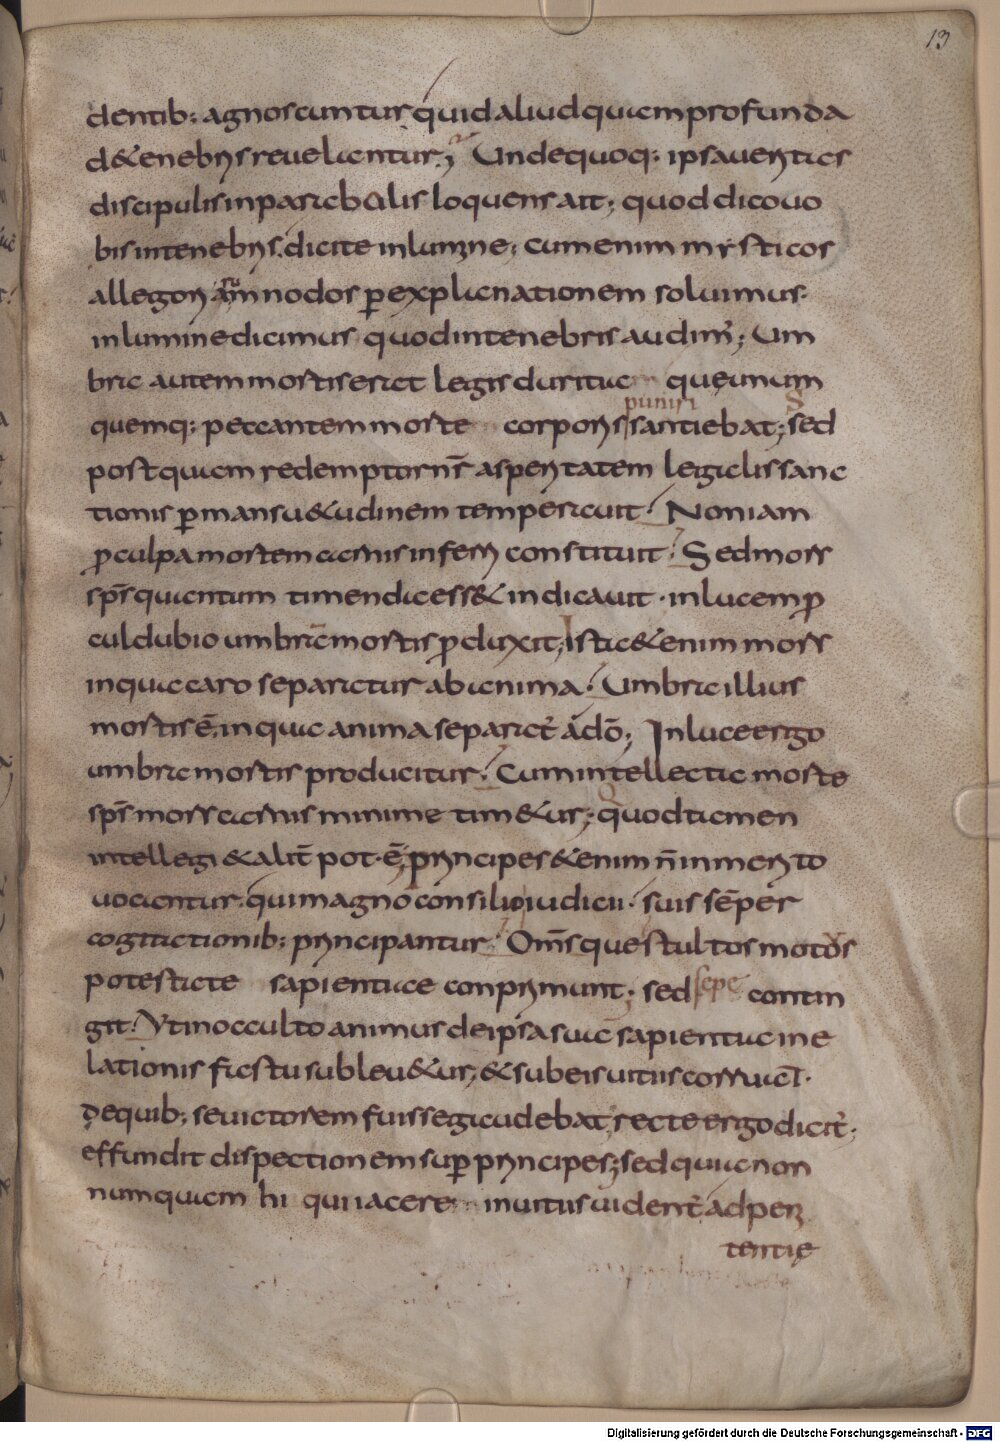 13
dentib; agnoscuntur. quid aliud quam profunda
de tenebris reuelantur; Undequoq; ipsa ueritas
discipulis in parabolis loquens ait; quod dico uo
bis in tenebris. dicite in lumine; cum enim mysticos
allegoriarum nodos p explanationem soluimus.
in lumine dicimus quod in tenebris audim'; Um
bra autem mortis erat legis duritia quę unum
puniri S
quemq; peccantem morte corporis santiebat; sed
postquam redemptor nr̄ asperitatem legalis sanc
tionis p mansuetudinem temperauit. Non iam
p culpa mortem carnis inferri constituit. Sed mors
sp̄s quantum timenda esset indicauit. in lucem p
cul dubio umbrā mortis pduxit; Ista etenim mors
in qua caro separatur ab anima. Umbra illius
mortis ē, in qua anima separat' a dō; In luce ergo
umbra mortis producitur. Cum intellecta morte
sp̄s mors carnis minime timetur; quod tamen
intellegi et alit̄ pot ē; principes etenim n̄ inmerito
uocantur. qui magno consilio iudicii suis sēper
cogitationib; principantur. Om̄sque stultos motus
potestate sapientiae conprimunt; sed sepe contin
git. Ut in occulto animus de ipsa sua sapientia in e
lationis fastu subleuetur; et sub eis uitiis corruat.
De quib; se uictorem fuisse gaudebat; recte ergo dicit';
effundit dispectionem sup principes; sed quia non
numquam hi qui iacere in uitiis uident' ad peni
tentię
Digitalisierung gefördert durch die Deutsche Forschungsgemeinschaft - DFG